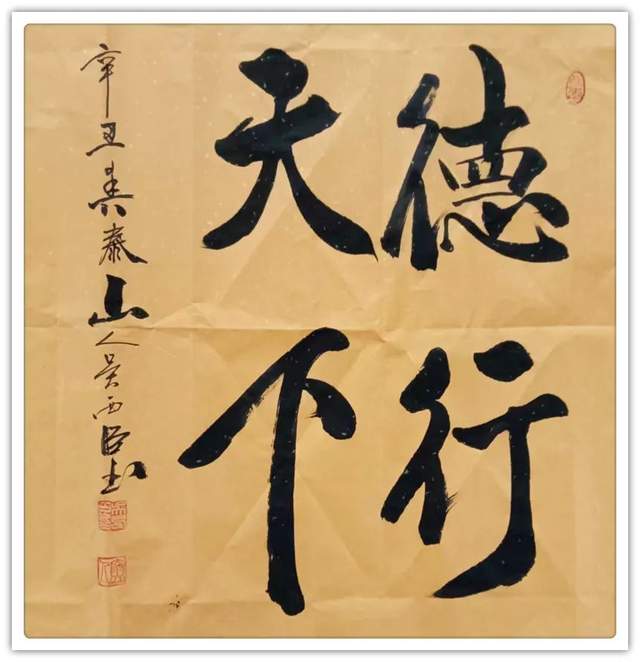 德行
天下
辛丑奏泰山人吴西臣书